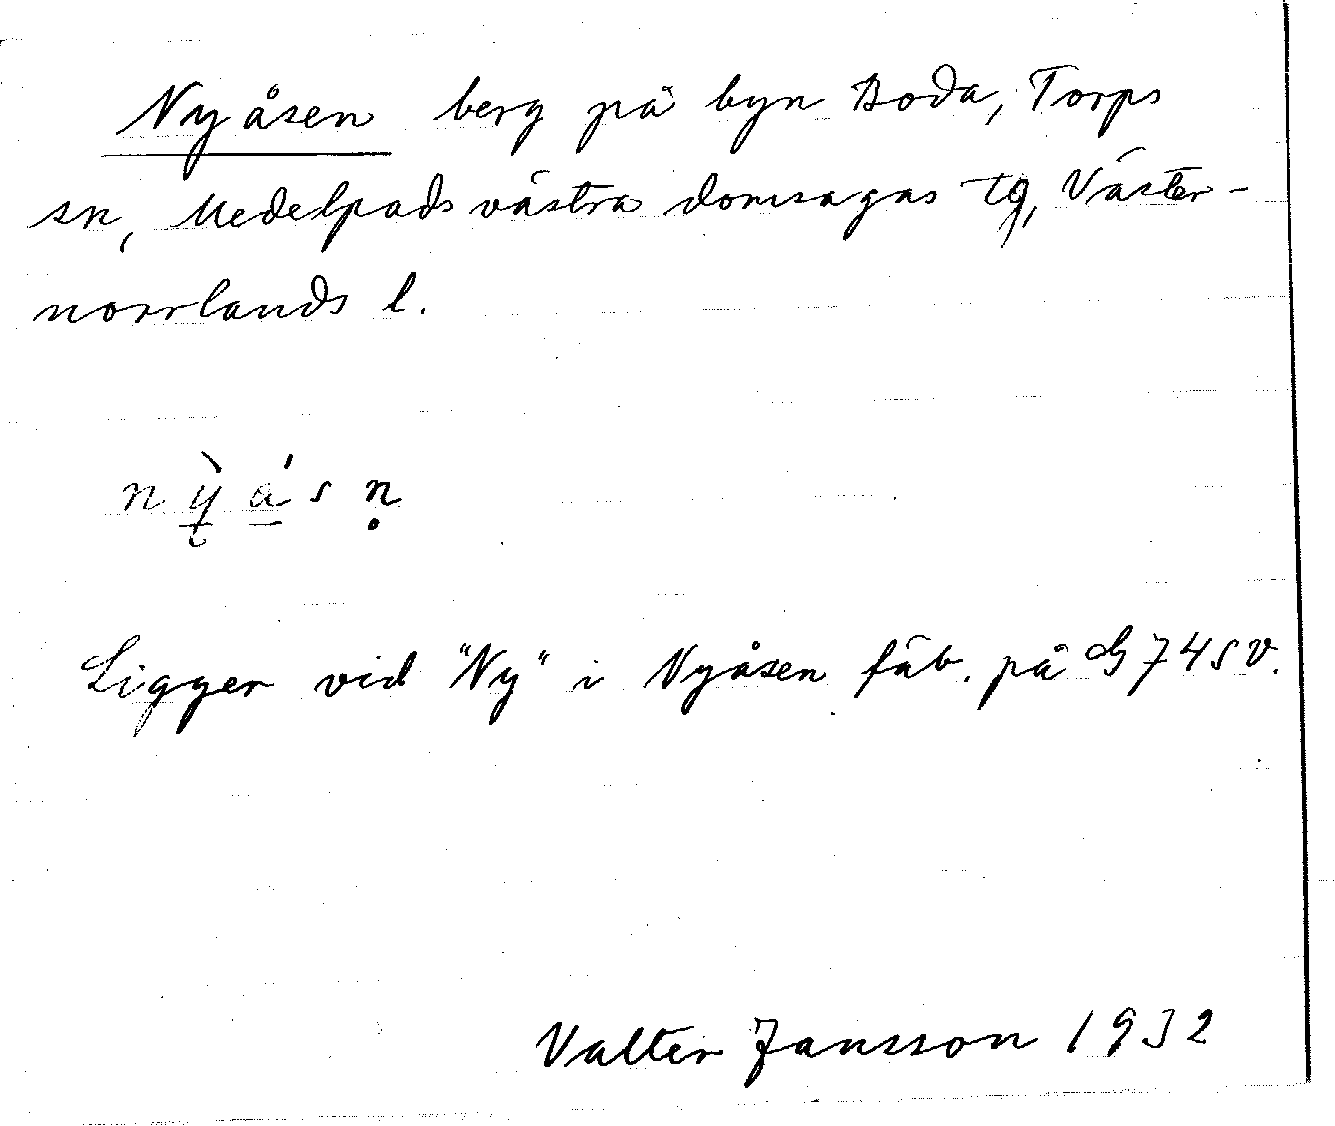 Nyåsen berg på byn Boda, Torps
sn, Medelpads västra domsagas tg, Väster-
norrlands l.
nỳ̱á̱sṇ
Ligger vid "Ny" i Nyåsen fäb. på G 74 SV.
Valter Jansson 1932